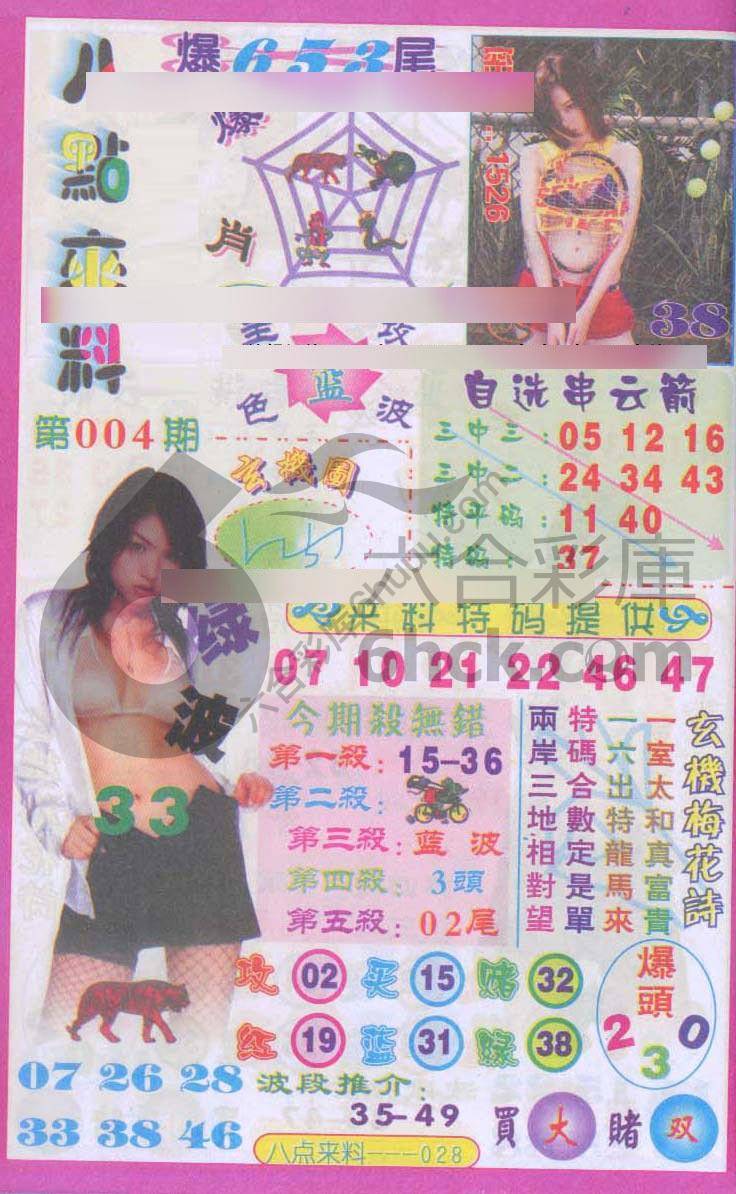 八點來料
爆653尾
爆
肖
1526
38
色蓝波
第004期
玄機圖
自选串云箭
三中三:05 12 16
三中二:24 34 43
特平码:11 40
特码:37
六合彩庫
6hck.com
六合彩库6hubu.com
來料特码提供
07 10 21 22 46 47
波
33
今期殺無錯
第一殺:15-36
第二殺:
第三殺:蓝波
第四殺:3頭
第五殺:02尾
玄機梅花詩
一室太和真富貴
一六出特龍馬來
特碼合數定是單
兩岸三地相對望
攻 02 买 15 赌 32
红 19 蓝 31 绿 38
爆頭
2 3 0
07 26 28
33 38 46
波段推介:
35-49
買大賭双
八点来料---028